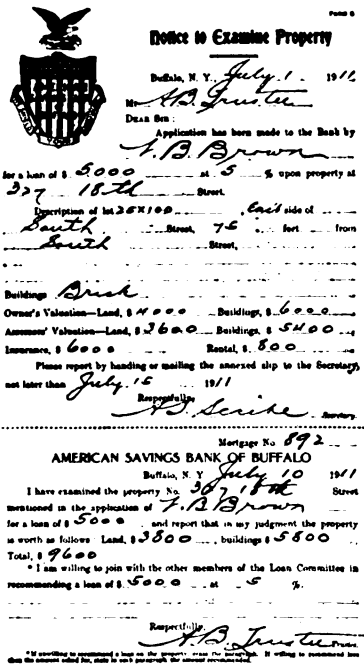 FORM 5
Notice to Examine Property
Buffalo, N. Y., July 1 1911
Mr A B Trustee
DEAR SIR:
Application has been made to the Bank by
B. Brown
for a loan of $ 5,000 at 5 % upon property at
327 18th Street.
Description of lot 25X100 East side of
South Street, 75 feet from
South Street,
Buildings Brick
Owner's Valuation—Land, $ 4000 Buildings, $ 6000
Assessors' Valuation—Land, $ 3600 Buildings, $ 5400
Insurance, $ 6000 Rental, $ 800
Please report by handing or mailing the annexed slip to the Secretary,
not later than July 15 1911
Respectfully,
A B Scribe Secretary.
Mortgage No 892
AMERICAN SAVINGS BANK OF BUFFALO
Buffalo, N. Y July 10 1911
I have examined the property No. 18th Street
mentioned in the application of B Brown
for a loan of $ 5000 and report that in my judgment the property
is worth as follows: Land, $ 3800 buildings $ 5800
Total, $ 9600
* I am willing to join with the other members of the Loan Committee in
recommending a loan of $ 5000 at 5 %.
Respectfully,
A B Trustee Trustee
* If unwilling to recommend a loan on the property, erase the paragraph. If willing to recommend less
than the amount asked for, state in such paragraph the amount recommended.